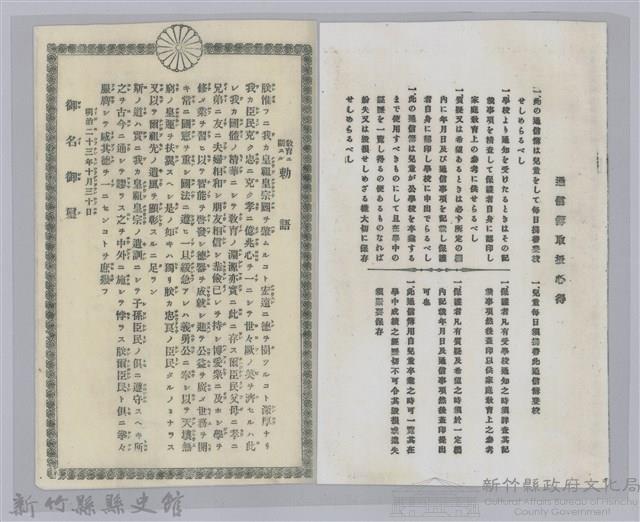 通信簿取扱心得
一此の通信簿は兒童をして每日携帶登校
せしめらるべし
一學校より通知を受けたるときはその記
載事項を精查して保護者自身に認印し
家庭敎育上の參考に供せらるべし
一質疑又は希望あるときは必す所定の欄
內に年月日及び通信事項を記載し保護
者自身に認印し學校に申出でらるべし
一此の通信簿は兒童が公學校を卒業する
まで使用すべきものにして且在學中の
經歷を一覽し得るの便あるものなれば
紛失又は毀損せしめざる樣大切に保存
せしめらるべし
一兒童每日須携帶此通信簿登校
一保護者凡有受學校通知之時須詳查其記
載事項然後蓋印以供家庭敎育上之參考
一保護者凡有質疑及希望之時須於一定欄
內記載年月日及通信事項然後蓋印提出
可也
一此通信簿用自兒童卒業之時可一覽其在
學中成績之經歷切不可令其毀損或遺失
須嚴要保存
敎育ニ
關スル
勅語
朕惟フニ我カ皇祖皇宗國ヲ肇ムルコト宏遠ニ德ヲ樹ツルコト深厚ナリ
我カ臣民克ク忠ニ克ク孝ニ億兆心ヲ一ニシテ世々厥ノ美ヲ濟セルハ此
レ我カ國體ノ精華ニシテ敎育ノ淵源亦實ニ此ニ存ス爾臣民父母ニ孝ニ
兄弟ニ友ニ夫婦相和シ朋友相信シ恭儉己レヲ持シ博愛衆ニ及ホシ學ヲ
修メ業ヲ習ヒ以テ智能ヲ啓發シ德器ヲ成就シ進テ公益ヲ廣メ世務ヲ開
キ常ニ國憲ヲ重シ國法ニ遵ヒ一旦緩急アレハ義勇公ニ奉シ以テ天壤無
窮ノ皇運ヲ扶翼スヘシ是ノ如キハ獨リ朕カ忠良ノ臣民タルノミナラス
又以テ爾祖先ノ遺風ヲ顯彰スルニ足ラン
斯ノ道ハ實ニ我カ皇祖皇宗ノ遺訓ニシテ子孫臣民ノ俱ニ遵守スヘキ所
之ヲ古今ニ通シテ謬ラス之ヲ中外ニ施シテ悖ラス朕爾臣民ト俱ニ拳々
服膺シテ咸其德ヲ一ニセンコトヲ庶幾フ
明治二十三年十月三十日
御名御璽
新竹縣縣史館
新竹縣政府文化局
Cultural Affairs Bureau of Hsinchu
County Government